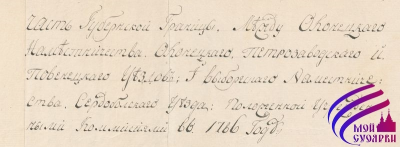 часть Губернской Границы, Между Олонецкаго
Намѣстничества. Олонецкаго, Петрозаводскаго и
Повенецкаго Уѣздовъ; и выборгскаго Намѣстниче-
ства, Сердобольскаго Уѣзда; Положенной
Коммисіей въ 1786 Годѣ
МОЙ
СУОЯРВИ